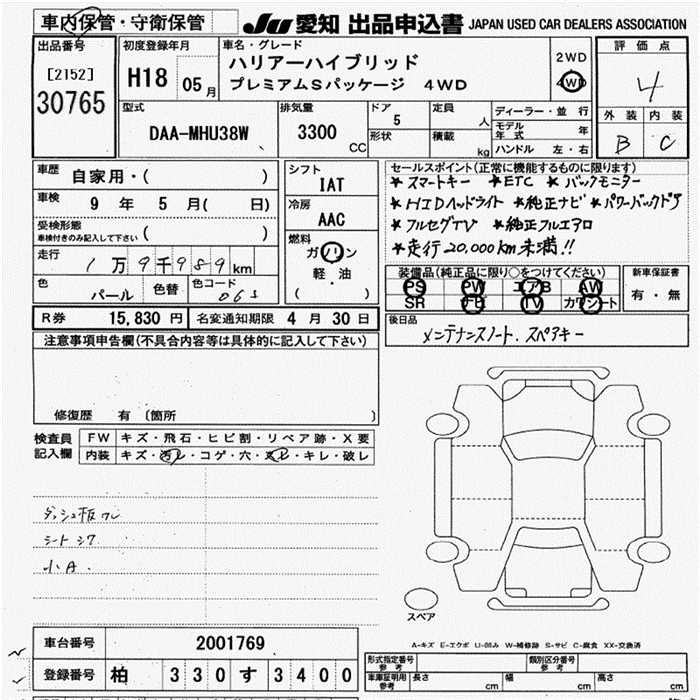 車内保管・守衛保管
JU 愛知 出品申込書 JAPAN USED CAR DEALERS ASSOCIATION
出品番号 [2152] 30765
初度登録年月 H18 05月
車名・グレード ハリアーハイブリッド
プレミアムSパッケージ 4WD
2WD
4WD
評価点 4
外装 内装
B C
型式 DAA-MHU38W
排気量 3300 CC
ドア 5
形状
定員 人
積載 kg
ディーラー・並行
モデル年式 年
ハンドル 左・右
車歴 自家用・( )
車検 9年 5月( 日)
受検形態
車検付きのみ記入して下さい ( )
走行 1万9千989km
色 パール 色替 色コード 063
シフト IAT
冷房 AAC
燃料 ガソリン
軽・油
( )
セールスポイント(正常に機能するものに限ります)
★スマートキー ★ETC ★バックモニター
★HIDヘッドライト ★純正ナビ ★パワーバックドア
★フルセグTV ★純正フルエアロ
★走行20,000km未満!!
装備品(純正品に限り○をつけてください)
PS PW エアB AW
SR ナビ TV カワシート
新車保証書
有・無
R券 15,830円 名変通知期限 4月30日
後日品
メンテナンスノート. スペアキー
注意事項申告欄(不具合内容等は具体的に記入して下さい)
修復歴 有 〔箇所 〕
検査員記入欄
FW キズ・飛石・ヒビ割・リペア跡・X要
内装 キズ・汚レ・コゲ・穴・スレ・キレ・破レ
ダッシュ板ワレ
シート シワ
小A.
スペア
A-キズ E-エクボ U-凹み W-補修跡 S-サビ C-腐食 XX-交換済
車台番号 2001769
登録番号 柏 330 す 3400
形式指定番号 参考
類別区分番号 参考
車庫証明用 参考 長さ cm 幅 cm 高さ cm